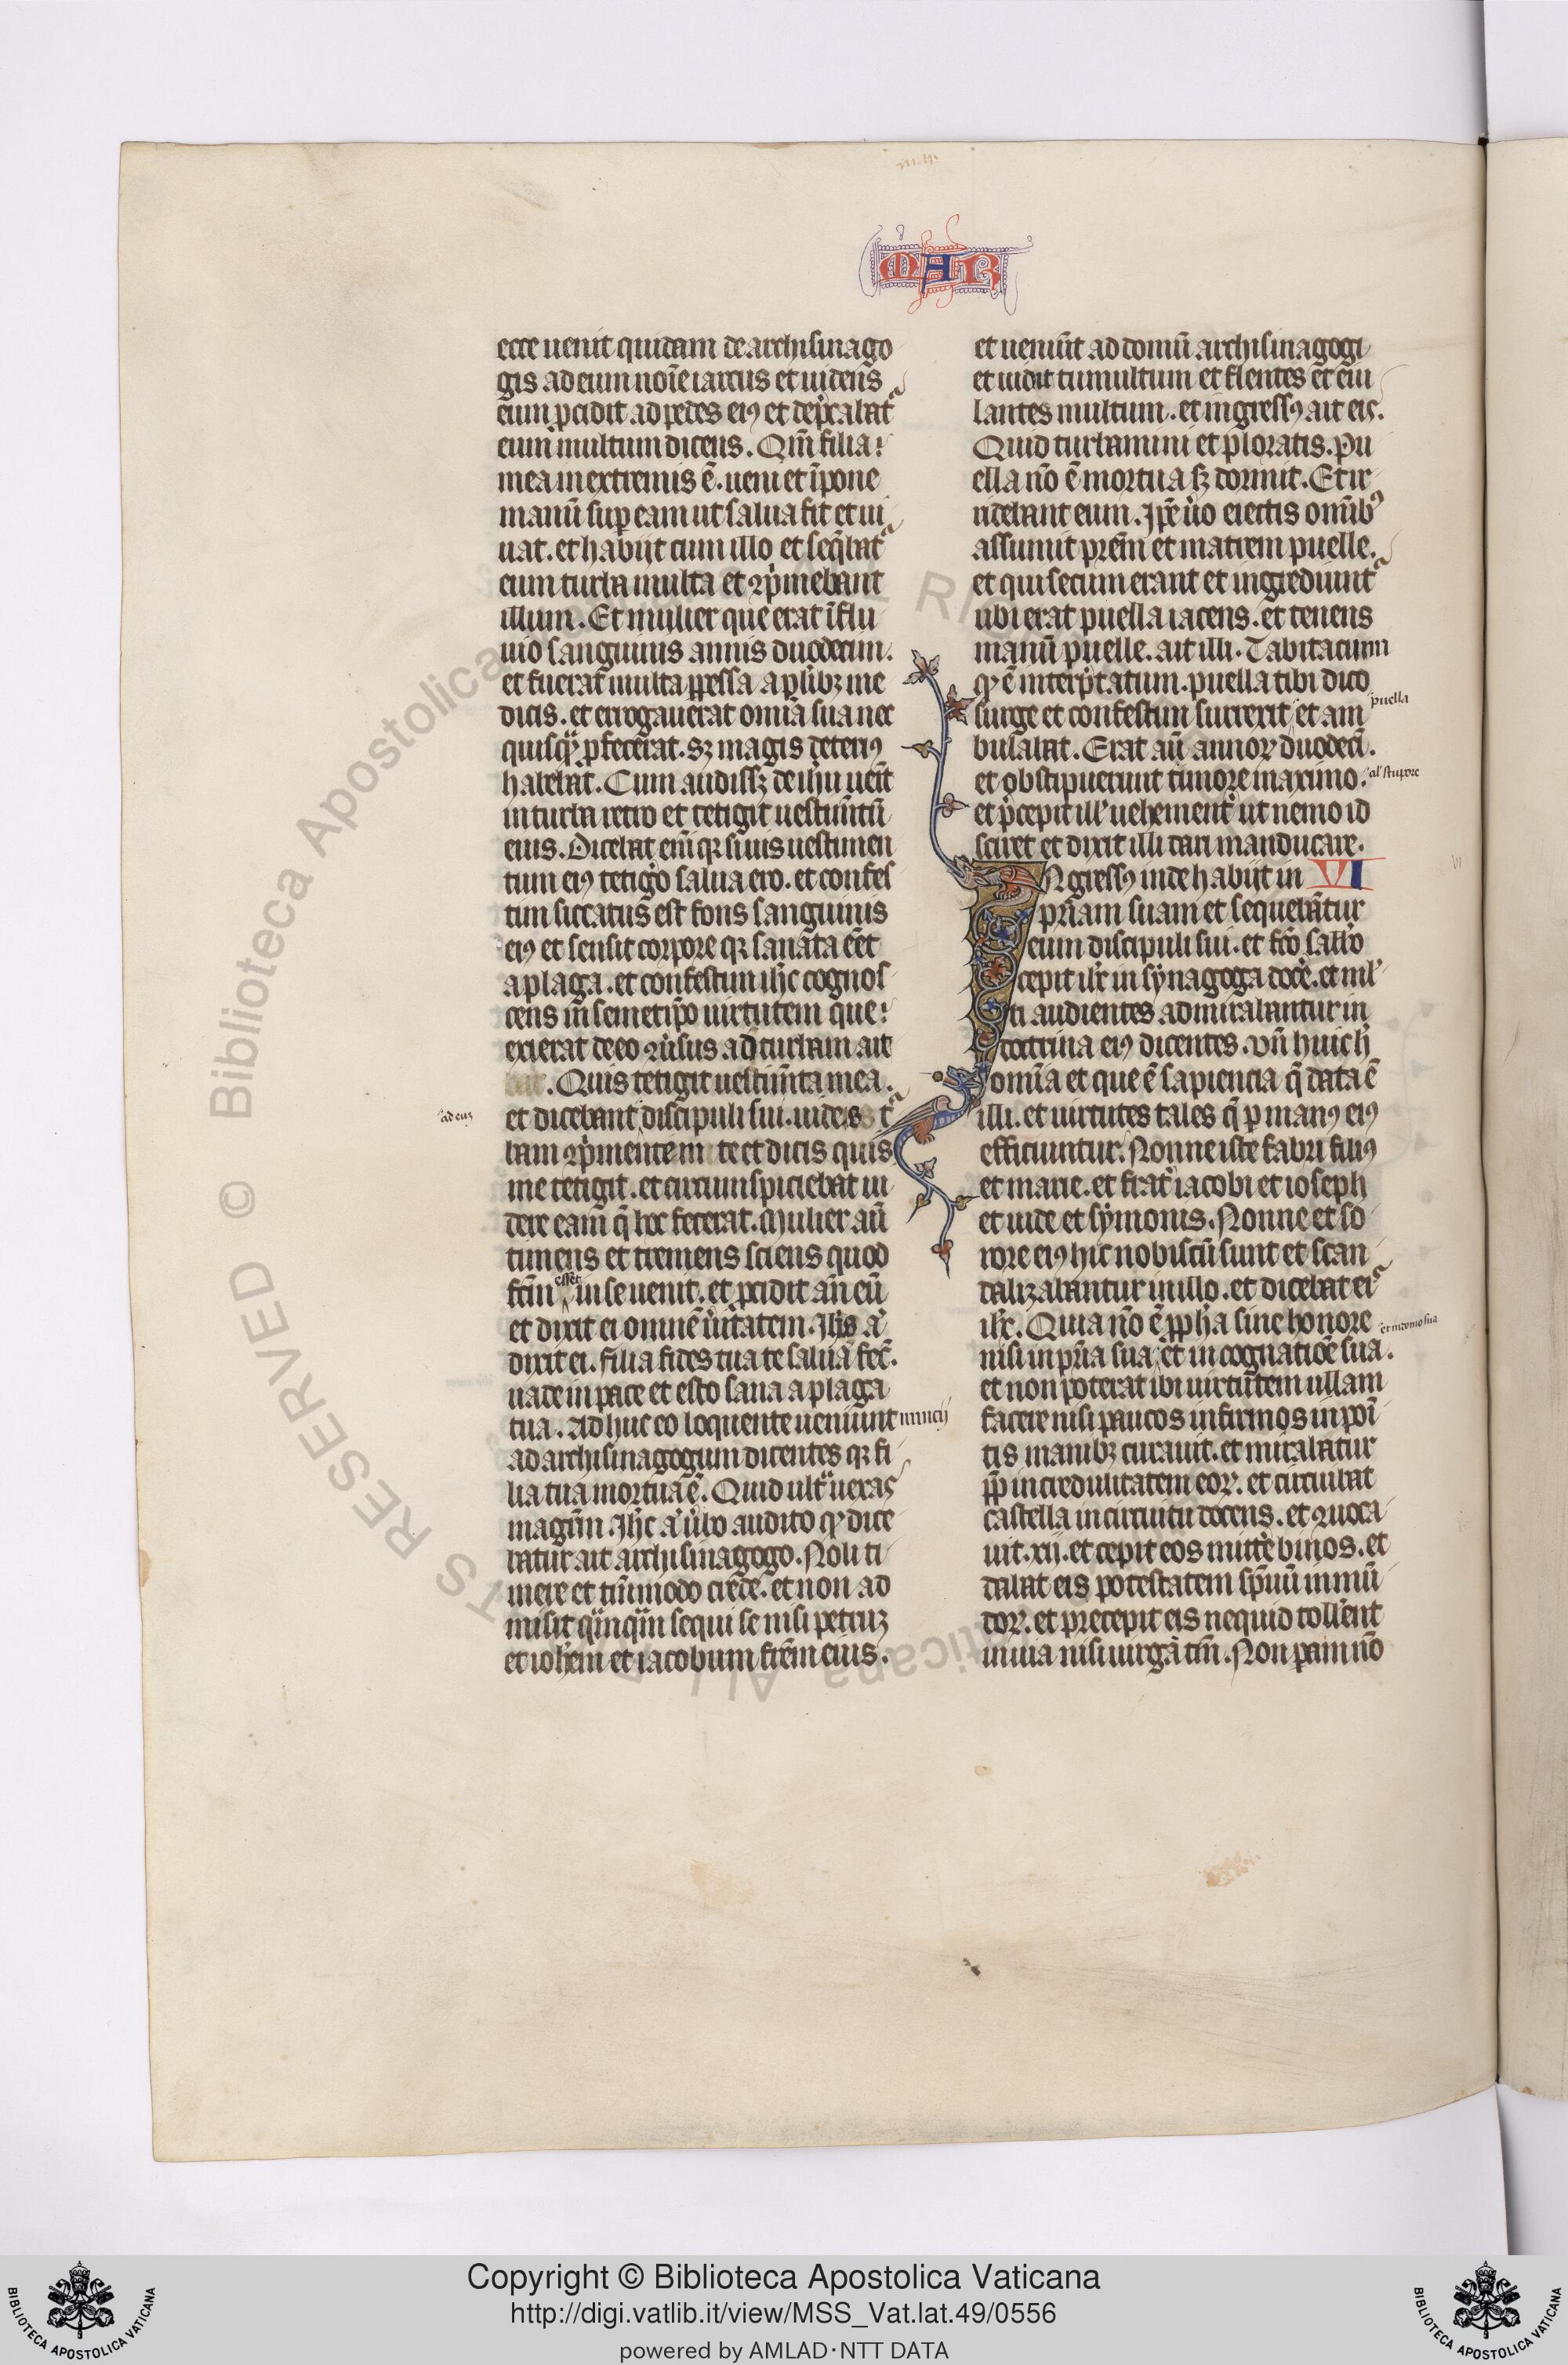 MAR
ecce uenit quidam de archisinago
gis ad eum noīe iairus et uidens
eum pcidit ad pedes eiꝰ et dep̃cabat᷑
eum multum dicens. Qm̃ filia
mea in extremis ē. ueni et īpone
manū sup eam ut salua sit et ui
uat. et habijt cum illo et seq̃bat᷑
eum turba multa et ꝯp̃mebant
illum. Et mulier que erat ī flu
uio sanguinis annis duodecim.
et fuerat multa ꝑpessa a pl̃ibꝫ me
dicis. et erogauerat omīa sua nec
quisqͣꝫ ꝓfecerat. sꝫ magis deteriꝰ
habebat. Cum audissꝫ de ihũ uēit
in turba retro et tetigit uestim̃tū
eius. Dicebat em̃ qꝛ si uľ uestimen
tum eiꝰ tetigo salua ero. et confes
tim siccatus est fons sanguinis
eiꝰ et sensit corpore qꝛ sanata eēt
a plaga. et confestim ihc̃ cognos
cens in semetip̃o uirtutem que
exierat de eo ꝯu̾sus ad turbam ait
. Quis tetigit uestim̃ta mea.
ad euꝫ
et dicebant discipuli sui. uides t᷑
bam ꝯp̃mentem te et dicis quis
me tetigit. et circumspiciebat ui
dere eam q̃ hoc fecerat. Mulier aū
timens et tremens sciens quod
fcm̃ esset in se uenit. et pcidit añ eū
et dixit ei omnē u̾itatem. Ihs̃ aͥ
dixit ei. filia fides tua te saluā fec̃.
uade in pace et esto sana a plaga
tua. Adhuc eo loquente ueniunt nuncij
ad archisinagogum dicentes qꝛ fi
lia tua mortua ē. Quid ultͣ uexas
magr̃m. Ihc̃ aͥ ũbo audito qͦ dice
batur ait archisinagogo. Noli ti
mere et tm̃modo crede. et non ad
misit qm̃qm̃ sequi se nisi petruꝫ
et ioh̃em et iacobum fr̃em eius.
et ueniūt ad domū archisinagogi
et uidit tumultum et flentes et eiu
lantes multum. et ingressꝰ ait eis.
Quid turbamini et ploratis. Pu
ella nō ē mortua sꝫ dormit. Et ir
ridebant eum. Ip̃e ũo eiectis omībꝰ
assumit pr̃em et matrem puelle.
et qui secum erant et ingrediunt᷑
ubi erat puella iacens. et tenens
manū puelle. ait illi. Tabitacumi
qͦ ē interp̃tatum. puella tibi dico
surge et confestim surrexit et am
puella
bulabat. Erat aū annoꝝ duodecī.
et obstipuerunt timore maximo.
al' stupore
et p̃cepit ill' uehement̃ ut nemo id
sciret et dixit illi dari manducare.
Ngressꝰ inde habijt in VI
pr̃iam suam et sequebantur
eum discipuli sui. et fc̃o sabb̃o
cepit ihc̃ in synagoga docē. et ml'
ti audientes admirabantur in
doctrina eiꝰ dicentes. Vñ huic h̾
omīa et que ē sapiencia q̃ data ē
illi. et uirtutes tales q̃ p manꝰ eiꝰ
efficiuntur. Nonne iste fabri filiꝰ
et marie. et frat̾ iacobi et ioseph
et iude et symonis. Nonne et so
rore eiꝰ hic nobiscū sunt et scan
dalizabantur in illo. et dicebat ei᷑
ihc̃. Quia nō ē ꝓph̃a sine honore
et in domo sua
nisi in pr̃ia sua et in cognatiōe sua.
et non poterat ibi uirtutem ullam
facere nisi paucos infirmos inpoī
tis manibꝫ curauit. et mirabatur
ꝓp̃ incredulitatem eoꝝ. et circuibat
castella in circuitu docens. et ꝯuoca
uit. xij. et cepit eos mittē binos. et
dabat eis potestatem sp̃uū inmū
doꝝ. et precepit eis nequid toll̃ent
in uia nisi uirgā tm̃. Non pam nō
Copyright © Biblioteca Apostolica Vaticana
http://digi.vatlib.it/view/MSS_Vat.lat.49/0556
powered by AMLAD·NTT DATA